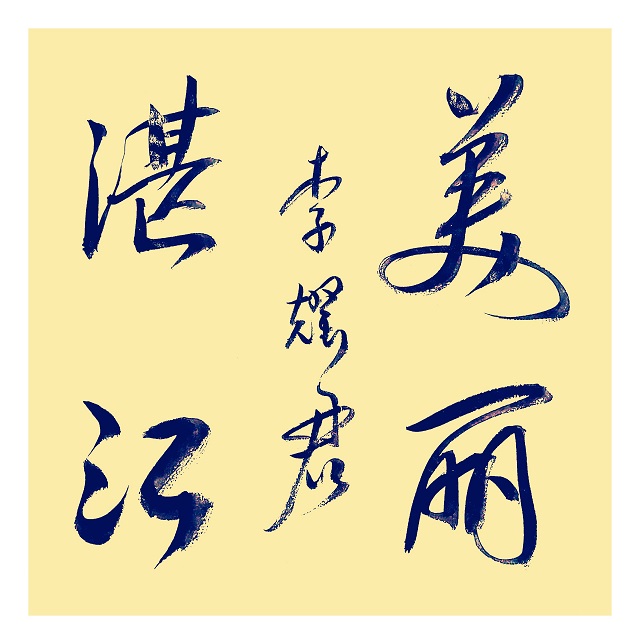 美丽
李耀君
湛江